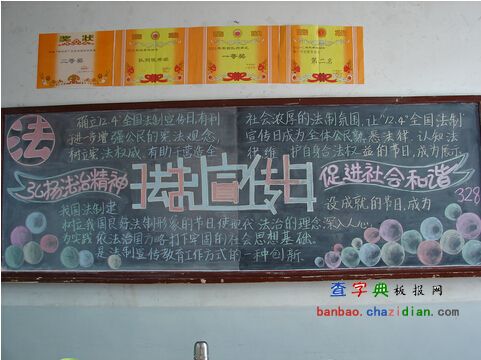 奖状
二等奖
一等奖
第二名
法
确立"12.4"全国法制宣传日,有利
进一步增强公民的宪法观念,
树立宪法权威,有助于营造全
社会浓厚的法制氛围,让"12.4"全国法制
宣传日成为全体公民熟悉法律、认知法
律、维护自身合法权益的节日,成为展示
弘扬法治精神
法制宣传日
促进社会和谐
328
我国法制建
设成就的节日,成为
树立我国良好法制形象的节日,使现代法治的理念深入人心,
为实践依法治国方略打下牢固的社会思想基础。
是法制宣传教育工作方式的一种创新.
查字典板报网
banbao.chazidian.com